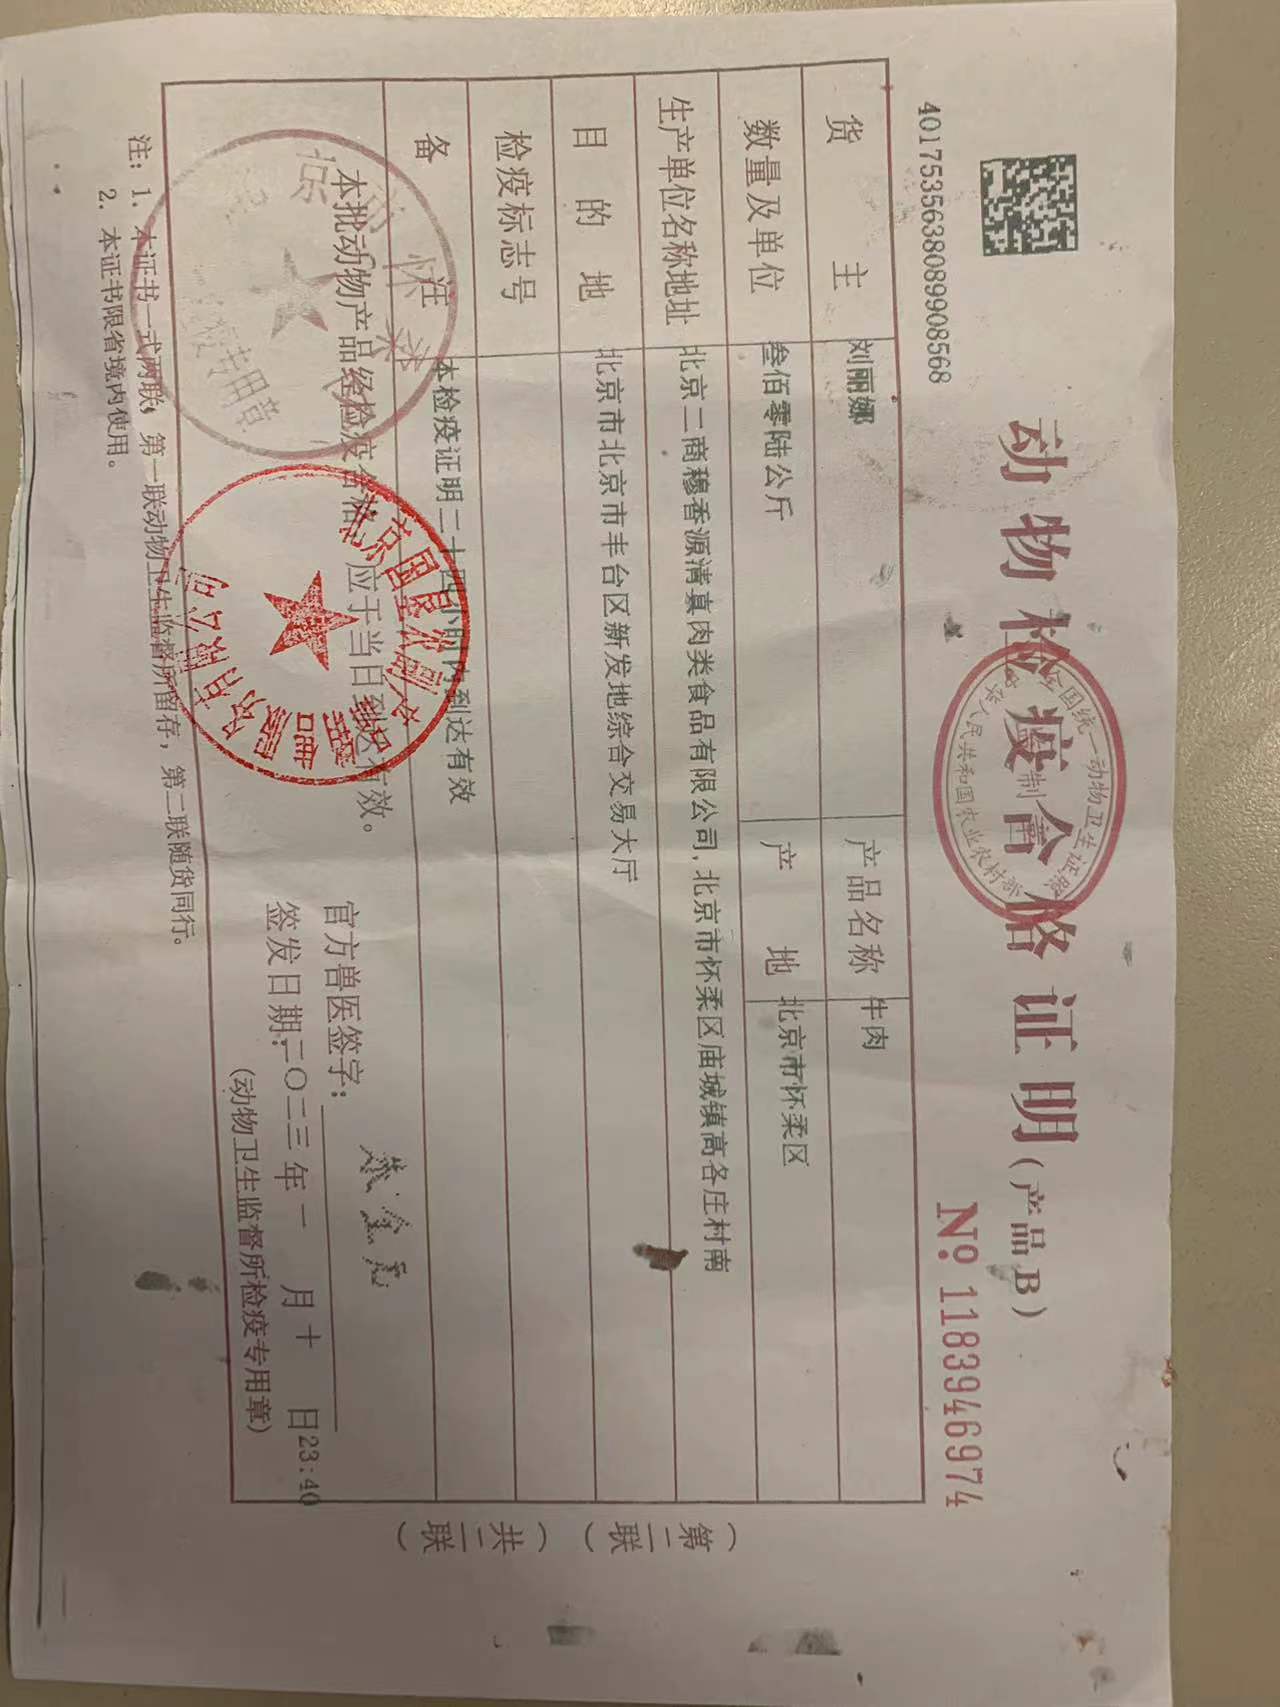 4017535638089908568
动物检疫合格证明(产品B)
全国统一动物卫生证照
监制章
中华人民共和国农业农村部
№ 1183946974
货主 刘丽娜 产品名称 牛肉
数量及单位 叁佰零陆公斤 产地 北京市怀柔区
生产单位名称地址 北京二商穆香源清真肉类食品有限公司,北京市怀柔区庙城镇高各庄村南
目的地 北京市北京市丰台区新发地综合交易大厅
检疫标志号
备注 本检疫证明二十四小时内到达有效
本批动物产品经检疫合格,应于当日到达有效。
官方兽医签字:
签发日期:二〇二三年一月十日23:40
(动物卫生监督所检疫专用章)
注:1.本证书一式两联,第一联动物卫生监督所留存,第二联随货同行。
2.本证书限省境内使用。
(第二联)
(共二联)